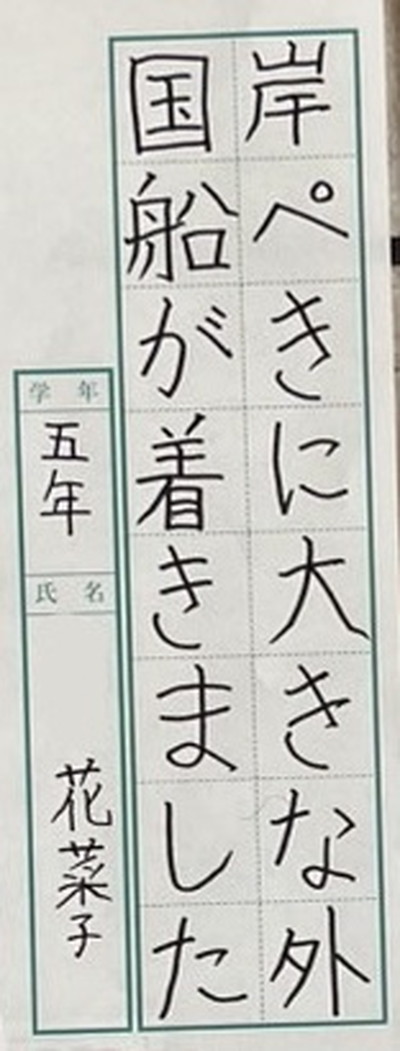 岸ぺきに大きな外
国船が着きました
学年
五年
氏名
花菜子